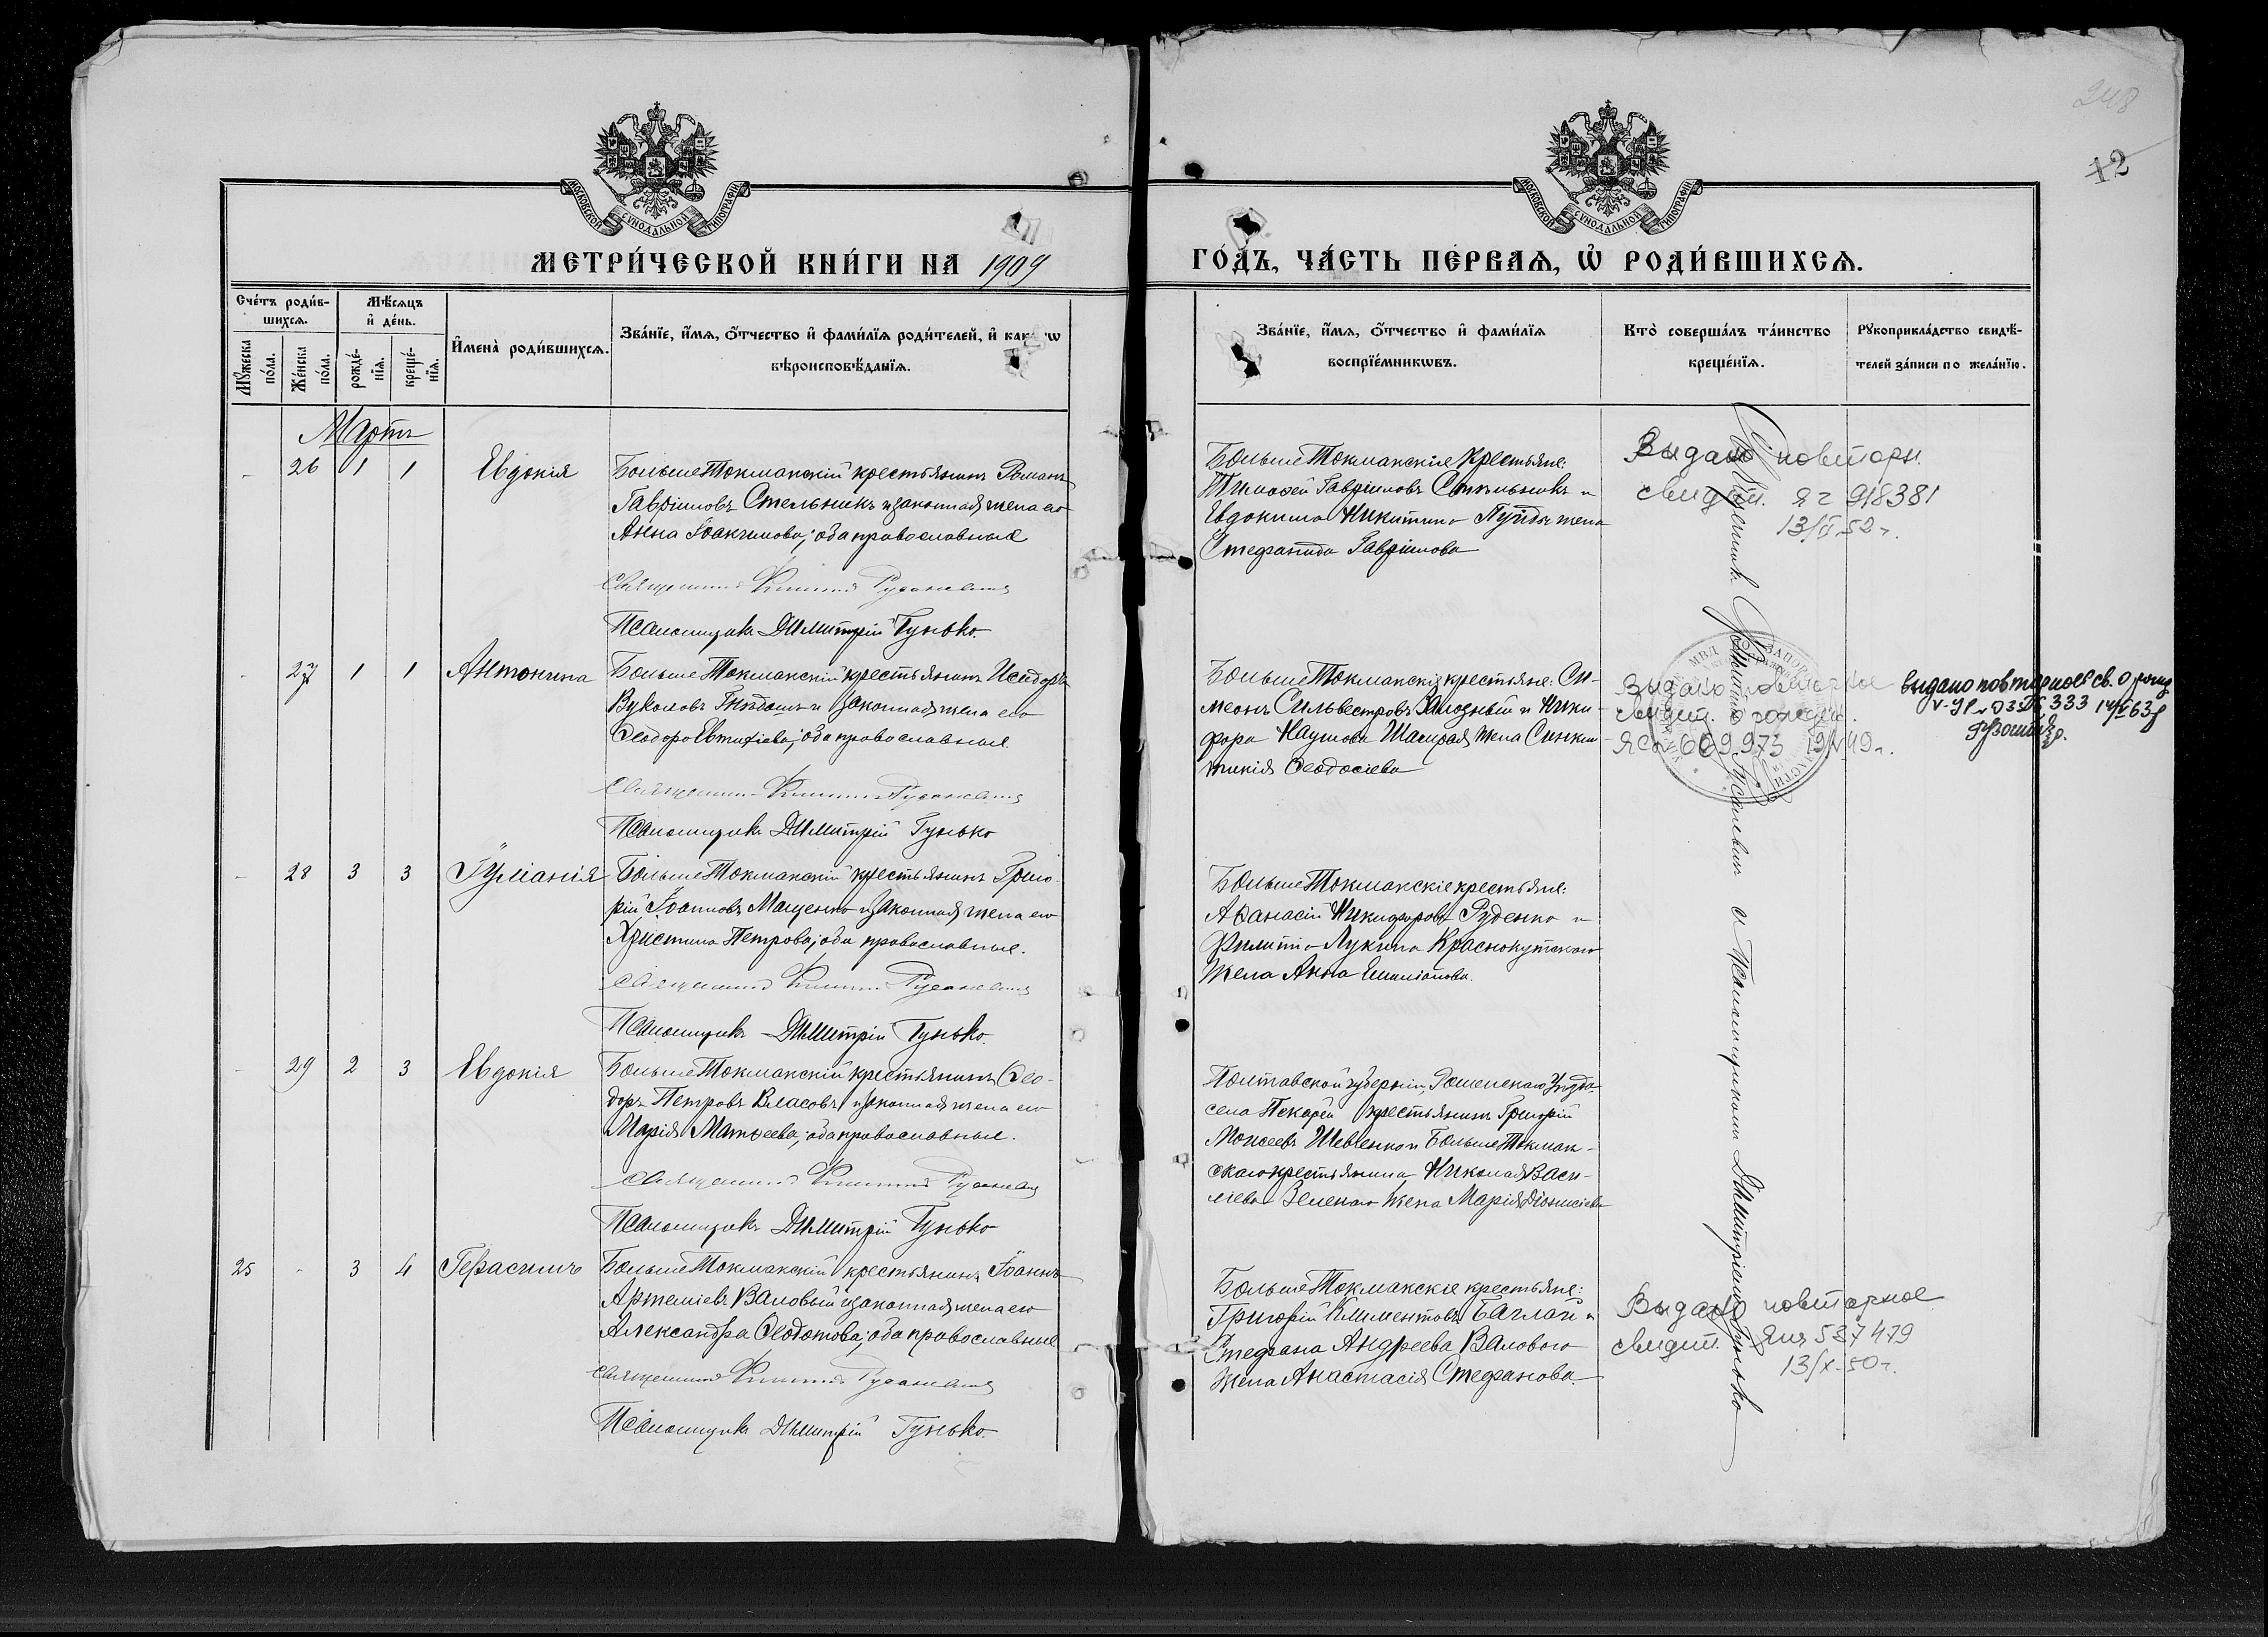 248
12
МОСКОВСКОЙ СѴНОДАЛЬНОЙ ТИПОГРАФІИ
МОСКОВСКОЙ СѴНОДАЛЬНОЙ ТИПОГРАФІИ
МЕТРИ́ЧЕСКОЙ КНИ́ГИ НА 1909
ГО́ДЪ, ЧА́СТЬ ПЕ́РВАѦ, Ѡ҆ РОДИ́ВШИХСѦ.
Сче́тъ роди́в-
шихсѧ.
Мꙋ́жеска
по́ла.
Же́нска
по́ла.
Мѣ́сѧцъ
и҆ де́нь.
рожде́-
нїѧ.
креще́-
нїѧ.
И҆мена̀ роди́вшихсѧ.
Зва́нїе, и҆́мѧ, ѻ҆́тчество и҆ фами́лїѧ роди́телей, и҆
вѣроисповѣ́данїѧ.
Зва́нїе, и҆́мѧ, ѻ҆́тчество и҆ фами́лїѧ
воспрїе́мникѡвъ.
Кто̀ соверша́лъ та́инство
креще́нїѧ.
Рꙋкоприкла́дство свидѣ́-
телей за́писи по жела́нїю.
Мартъ
- 26 1 1 Евдокія
БольшеТокмакскій крестьянинъ Романъ
Гавріиловъ Стельникъ и законная жена его
Анна Іоакимова, оба православные
Священникъ
Псаломщикъ Димитрій Гунько.
БольшеТокмакскіе крестьяне:
Тимоѳей Гавріиловъ Стельникъ и
Евдокима Никитина жена
Стефанида Гавріилова
Выдано повторн.
свидет. ЯГ 918381
13/II 52г.
- 27 1 1 Антонина
БольшеТокмакскій крестьянинъ Исидоръ
Вуколовъ и законная жена его
Ѳеодора Евтихіева, оба православные.
Священникъ
Псаломщикъ Димитрій Гунько
БольшеТокмакскіе крестьяне: Си-
меонъ Сильвестровъ и Ники-
фора Наумова жена Синкли-
тикія Ѳеодосіева
Выдано повторное
свидет. о рожден.
609973 49г.
выдано повторное св. о рожд
333 63г
- 28 3 3 Іуліанія
БольшеТокмакскій крестьянинъ Григо-
рій Іоанновъ Мащенко и законная жена его
Христина Петрова, оба православные.
Священникъ
Псаломщикъ Димитрій Гунько.
БольшеТокмакскіе крестьяне:
Аѳанасій Никифоровъ Руденко и
Филиппа Лукина Краснокутскаго
жена Анна Емиліанова.
- 29 2 3 Евдокія
БольшеТокмакскій крестьянинъ Ѳео-
доръ Петровъ Власовъ и законная жена его
Марія Матѳеева, оба православные.
Священникъ
Псаломщикъ Димитрій Гунько
Полтавской губерніи, уѣзда
села Пекарей крестьянинъ Григорій
Моисеевъ Шевченко и БольшеТокмак-
скаго крестьянина Николая Васи-
ліева Зеленаго жена Марія Діонисіева
25 - 3 4 Герасимъ
БольшеТокмакскій крестьянинъ Іоаннъ
Артеміевъ Валовый и законная жена его
Александра Ѳеодотова, оба православные
Священникъ
Псаломщикъ Димитрій Гунько.
БольшеТокмакскіе крестьяне:
Григорій Климентовъ Баглай и
Стефана Андреева Валового
жена Анастасія Стефанова.
Выдано повторное
свидет. 537479
13/X-50г.
Священникъ съ Псаломщикомъ Димитріемъ Гунько